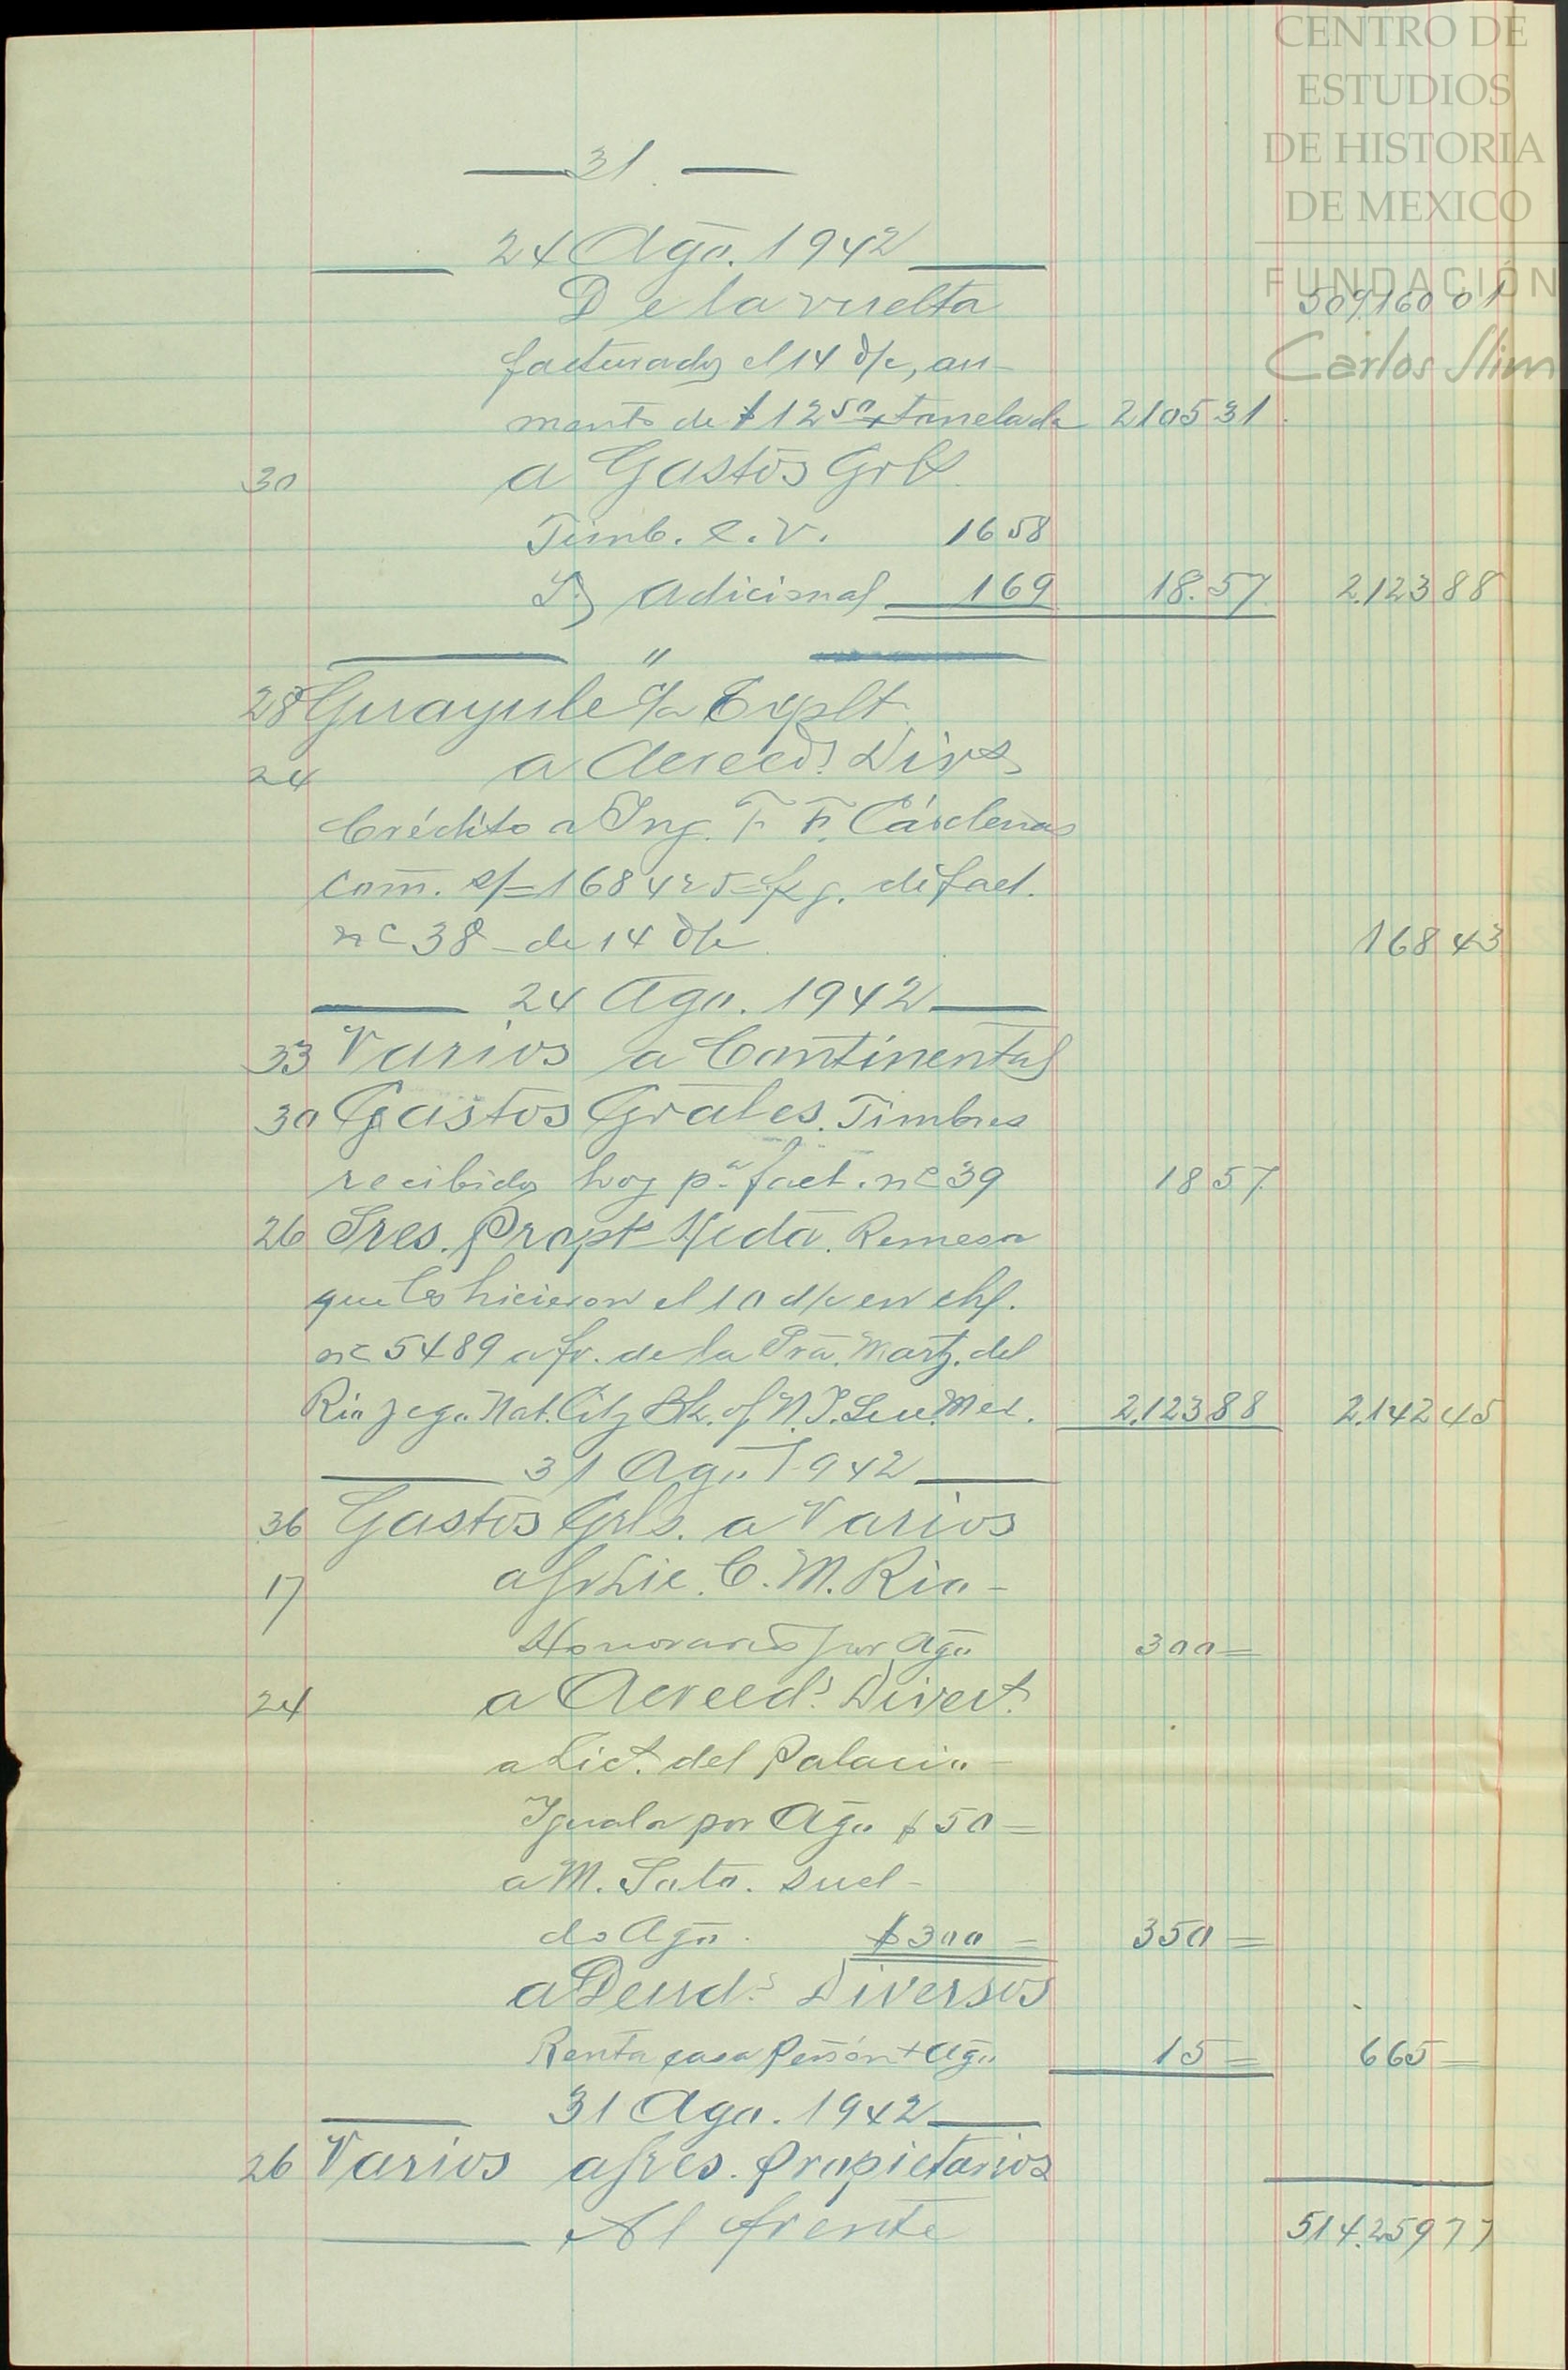 CENTRO DE
ESTUDIOS
DE HISTORIA
DE MEXICO
FUNDACIÓN
Carlos Slim
31.
24 Ago. 1942
De la vuelta 509160 01
facturados el 14 d/c, au-
mento de $12 50 x tonelada 2105 31
30 a Gastos Grls.
Timb. c.v. 16 58
Id adicional 1 69 18.57 2.123 88
"
28 Guayule c/a Explt.
24 a Acreeds. Divs
Crédito a Ing. F. F. Cárdenas
Com. s/=168425=kg. de fact.
nº 38 - de 14 d/c 168 43
24 Ago. 1942
33 Varios a Continental
30 Gastos Grales. Timbres
recibidos hoy pª fact. nº 39 18 57
26 Sres. Propts Hcda. Remesa
que les hicieron el 10 d/c en chq.
nº 5489 a fv. de la Sra. Martz. del
Rio y cgo Nat. City Bk. of N.Y. Suc. Mex. 2.123 88 2.142 45
31 Ago 1942
36 Gastos Grls. a Varios
17 a Sr Lic. C. M. Rio -
Honorarios por Ago 300 =
24 a Acreeds. Divers.
a Lict. del Palacio -
Iguala por Ago $50 =
a M. Soto. Suel-
do Ago. $300 = 350 =
a Deuds. Diversos
Renta casa Peñón x Ago 15 = 665 =
31 Ago. 1942
26 Varios a Sres. Propietarios
Al frente 514.259 77